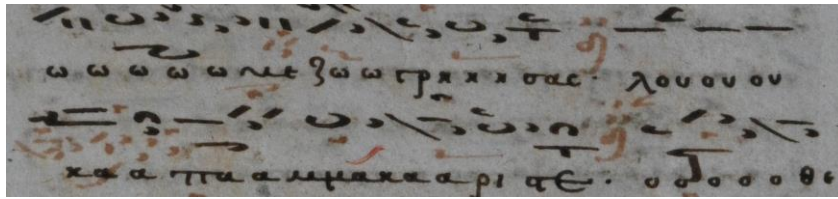 ω ω ω ω ω με ξω ω τρη η η σας · λου ου ου
κα α πα α μμα κα α ρι στε · ο ο ο ο ο θε